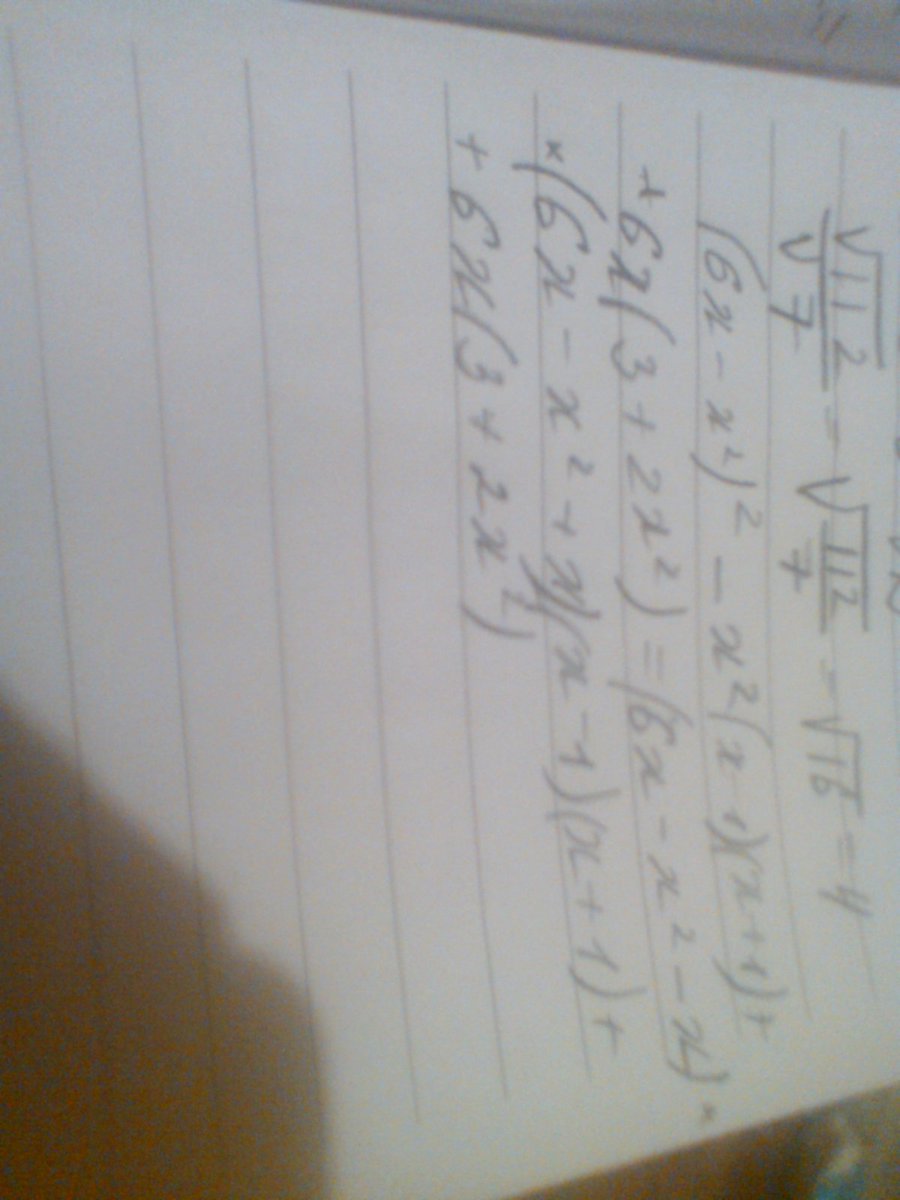 √112/√7 = √112/7 = √16 = 4
(6x - x²)² - x²(x-1)(x+1)+
+6x(3+2x²) = (6x - x² - x)×
×(6x - x² + x)(x-1)(x+1)+
+6x(3+2x²)